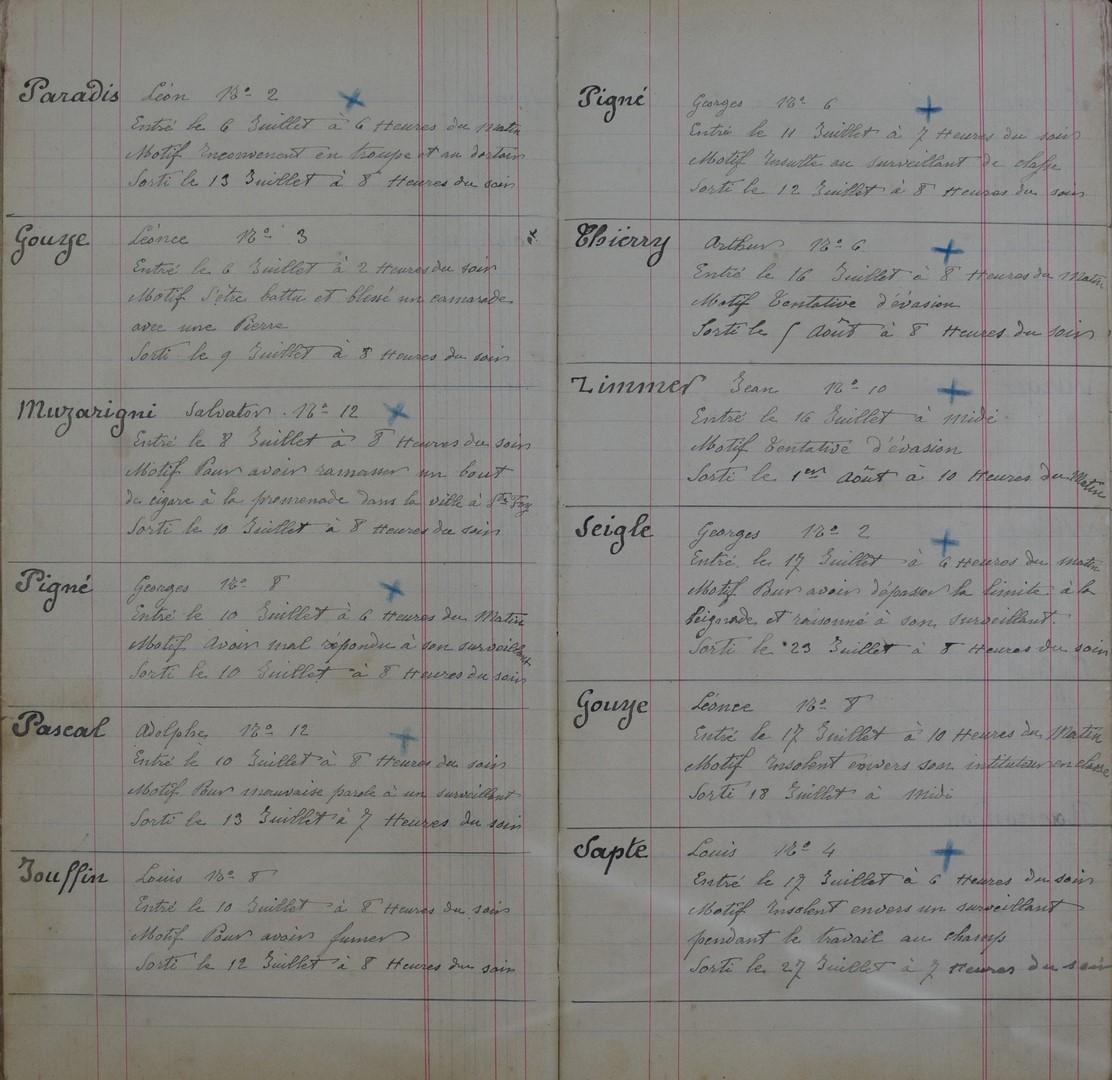 Paradis Léon No 2
Entré le 6 Juillet à 6 Heures du Matin
Motif Inconvenent en troupe et au dortoir
Sorti le 13 Juillet à 8 Heures du soir
Gouye Léonce No 3
Entré le 6 Juillet à 2 Heures du soir
Motif S'être battu et blessé un camarade
avec une Pierre
Sorti le 9 Juillet à 8 Heures du soir
Muzarigni Salvator No 12
Entré le 8 Juillet à 8 Heures du soir
Motif Pour avoir ramasser un bout
de cigare à la promenade dans la ville à Ste Foy
Sorti le 10 Juillet à 8 Heures du soir
Pigné Georges No 8
Entré le 10 Juillet à 6 Heures du Matin
Motif Avoir mal répondu à son surveillant
Sorti le 10 Juillet à 8 Heures du soir
Pascal Adolphe No 12
Entré le 10 Juillet à 8 Heures du soir
Motif Pour mauvaise parole à un surveillant
Sorti le 13 Juillet à 7 Heures du soir
Jouffin Louis No 8
Entré le 10 Juillet à 8 Heures du soir
Motif Pour avoir fumer
Sorti le 12 Juillet à 8 Heures du soir
Pigné Georges No 6
Entré le 11 Juillet à 7 Heures du soir
Motif Insulte au surveillant de classe
Sorti le 12 Juillet à 8 Heures du soir
Thiërry Arthur No 6
Entré le 16 Juillet à 8 Heures du Matin
Motif Tentative d'évasion
Sorti le 5 Août à 8 Heures du soir
Zimmer Jean No 10
Entré le 16 Juillet à midi
Motif Tentative d'évasion
Sorti le 1er Août à 10 Heures du Matin
Seigle Georges No 2
Entré le 17 Juillet à 6 Heures du matin
Motif Pour avoir dépasser la limite à la
Beignade et raisonné à son surveillant.
Sorti le 23 Juillet à 8 Heures du soir
Gouye Léonce No 8
Entré le 17 Juillet à 10 Heures du Matin
Motif Insolent envers son instituteur en classe
Sorti 18 Juillet à midi
Sapte Louis No 4
Entré le 17 Juillet à 6 Heures du soir
Motif Insolent envers un surveillant
pendant le travail au champs
Sorti le 27 Juillet à 7 Heures du soir